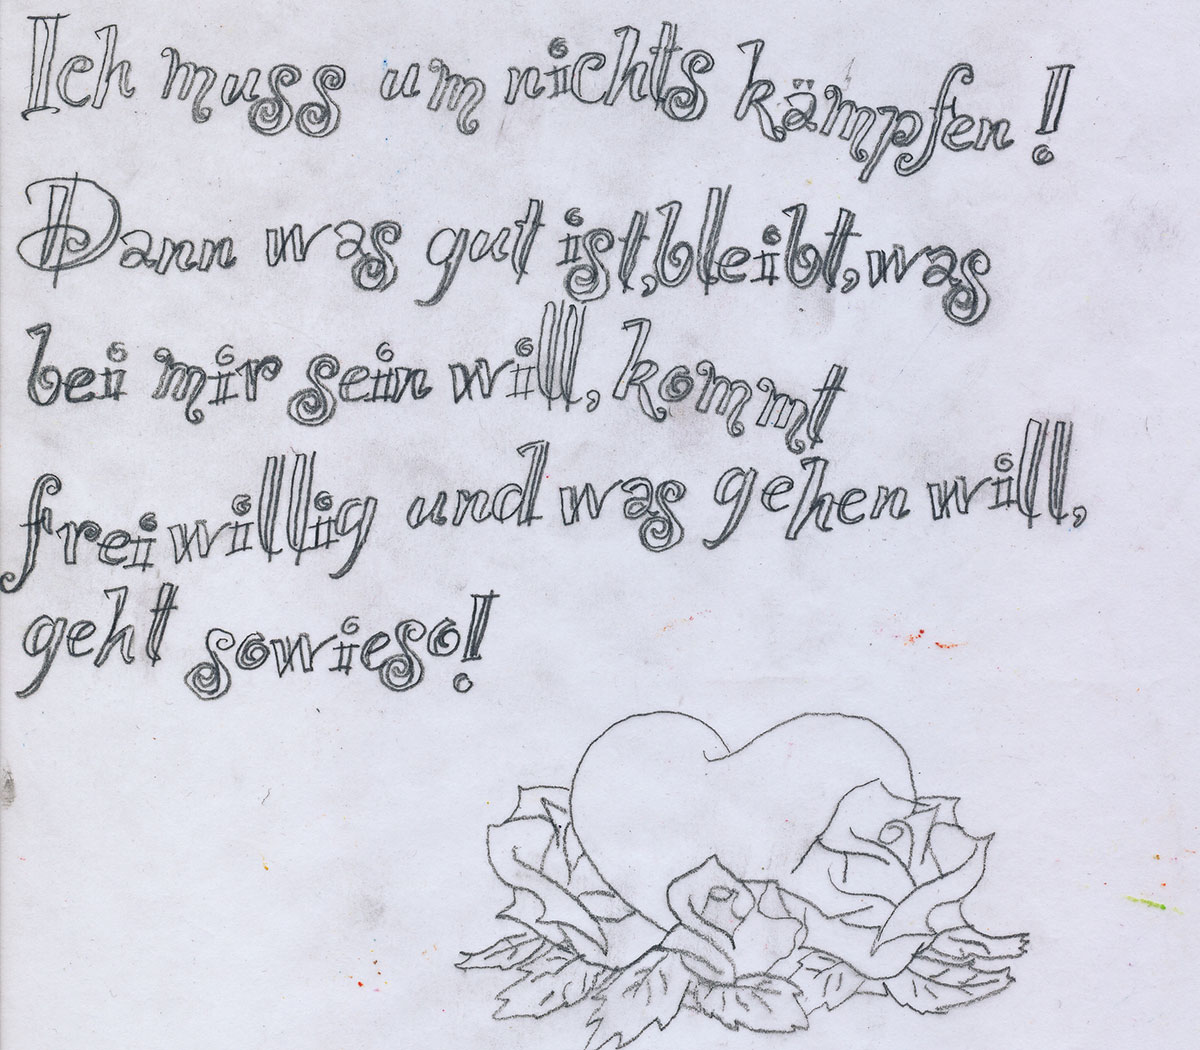 Ich muss um nichts kämpfen!
Dann was gut ist, bleibt, was
bei mir sein will, kommt
freiwillig und was gehen will,
geht sowieso!